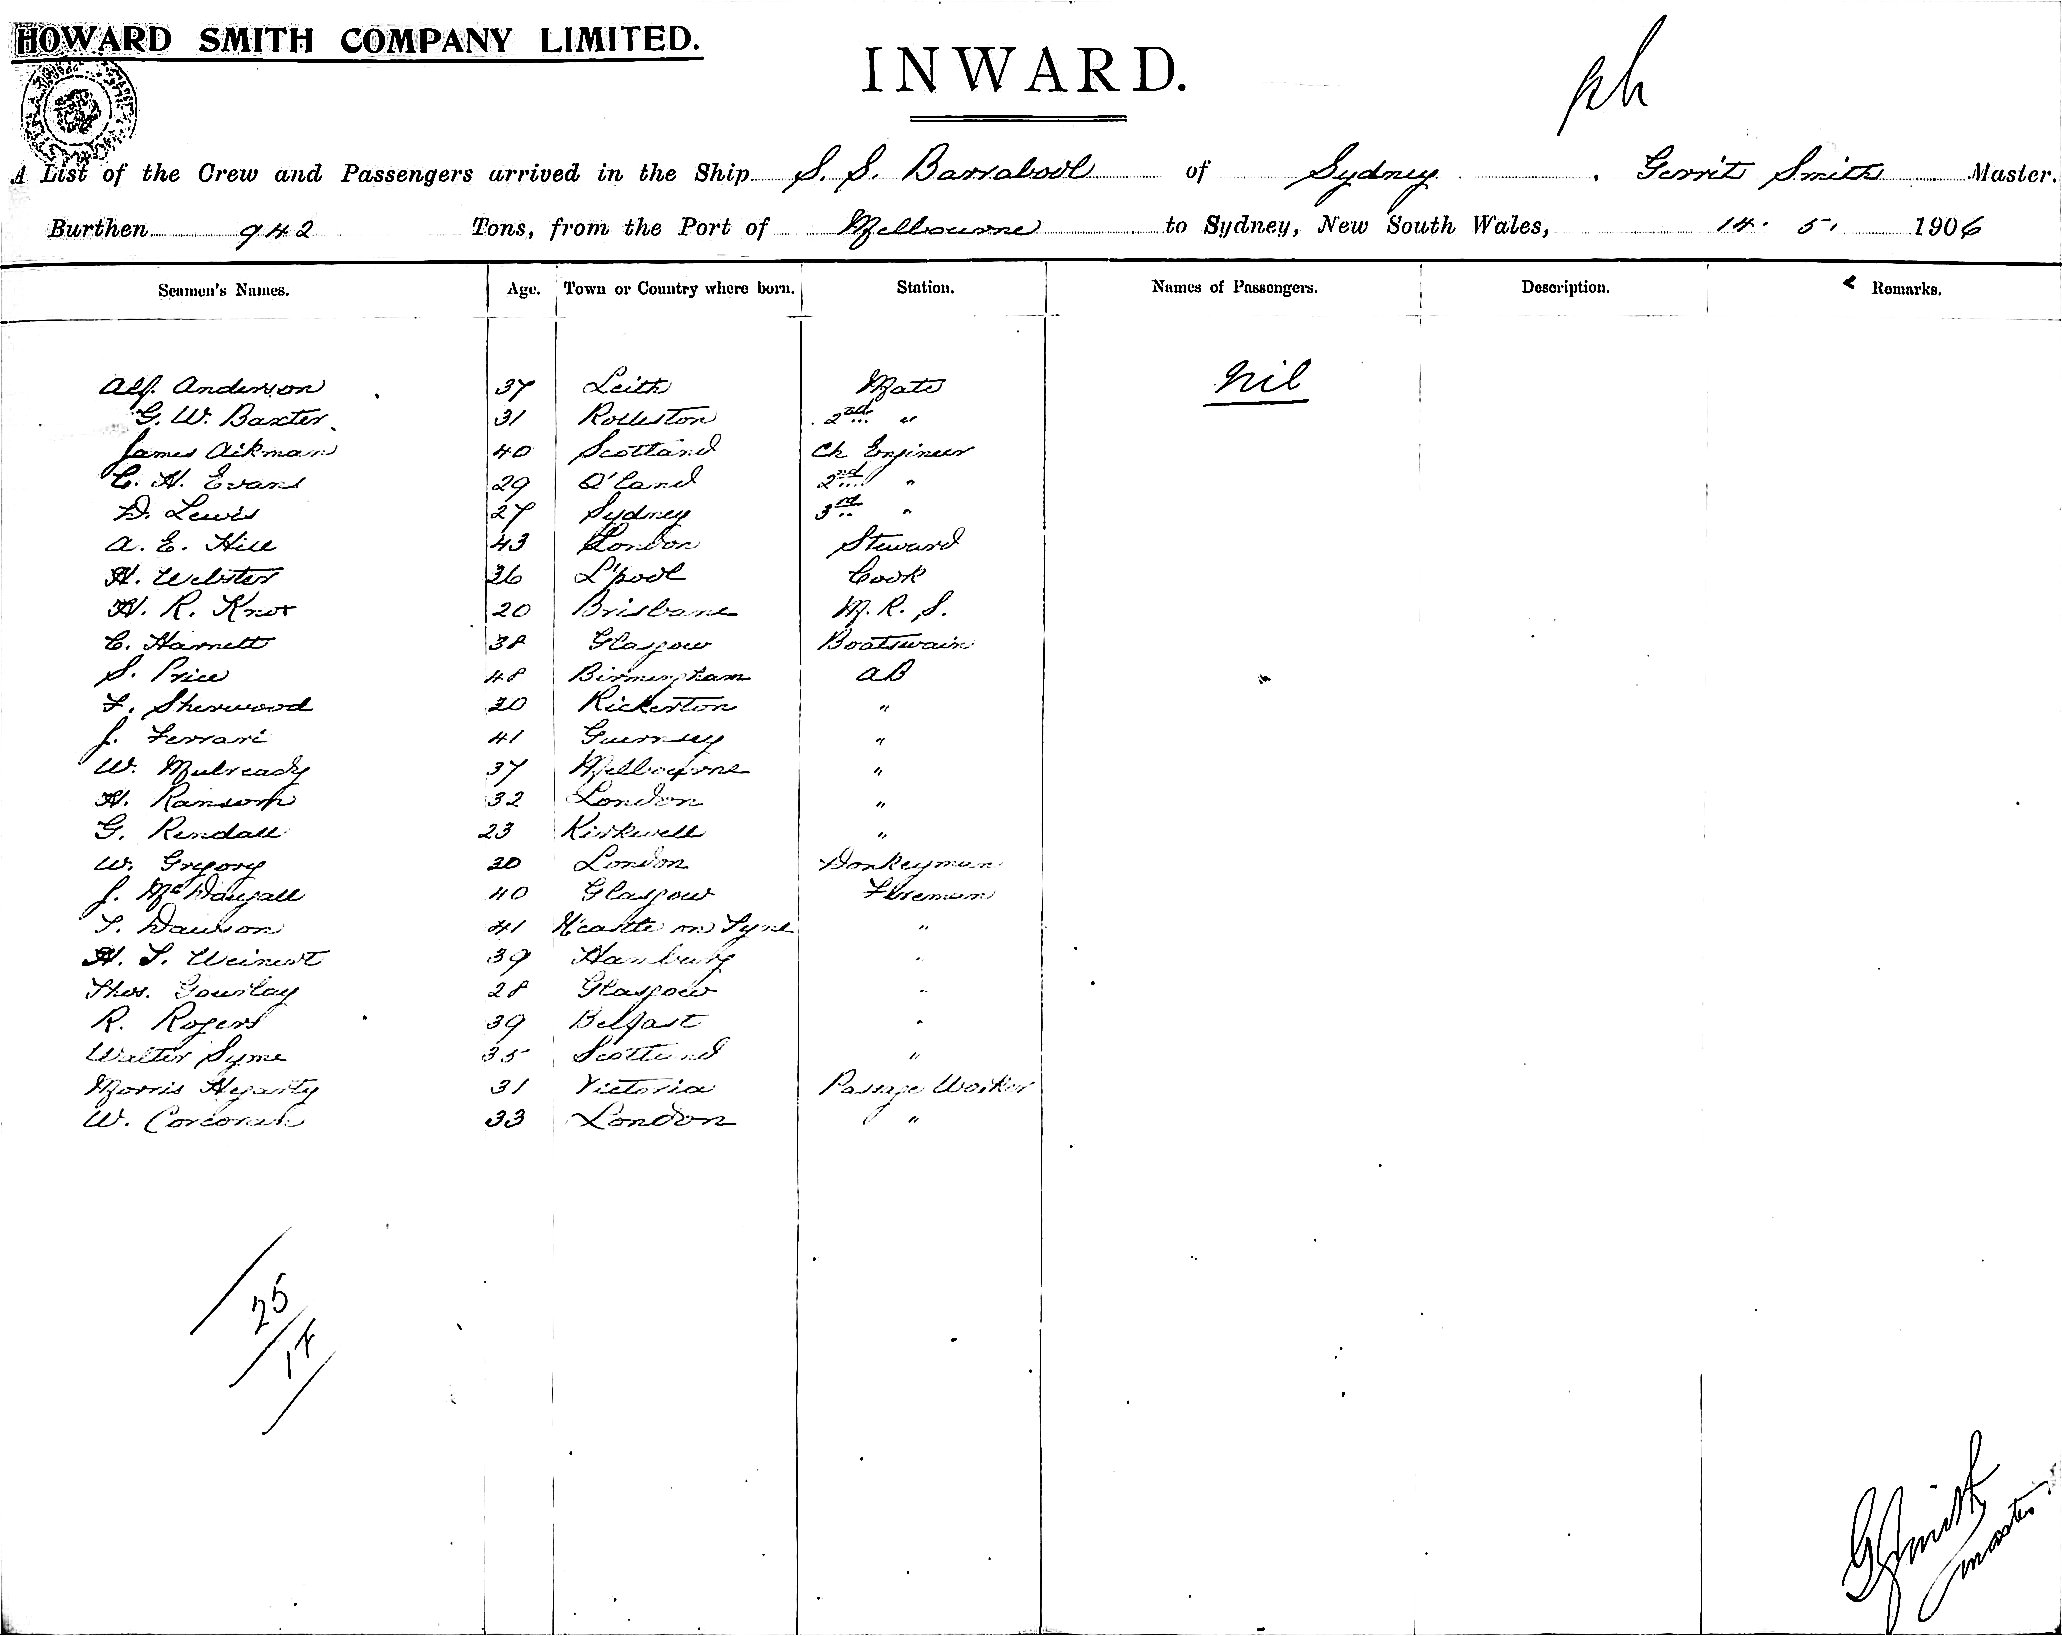 HOWARD SMITH COMPANY LIMITED.
INWARD.
A List of the Crew and Passengers arrived in the Ship S. S. Barrabool of Sydney, Gerrit Smith Master.
Burthen 942 Tons, from the Port of Melbourne to Sydney, New South Wales, 14. 5. 1906
Seamen's Names. Age. Town or Country where born. Station. Names of Passengers. Description. Remarks.
Alf. Anderson 37 Leith Mate Nil
G. W. Baxter 31 Rolleston 2nd "
James Aikman 40 Scotland Ch Engineer
C. H. Evans 29 Q'land 2nd "
D. Lewis 27 Sydney 3rd "
A. E. Hill 43 London Steward
H. Webster 36 L'pool Cook
H. R. Knox 20 Brisbane M. R. S.
C. Harnett 38 Glasgow Boatswain
S. Price 48 Birmingham AB
F. Sherwood 20 Rickerton "
J. Ferrari 41 Guernsey "
W. Mulready 37 Melbourne "
H. Ransom 32 London "
G. Rendall 23 Kirkwell "
W. Gregory 30 London Donkeyman
J. McDougall 40 Glasgow Fireman
T. Dawson 41 N'castle on Tyne "
H. T. Weinert 39 Hamburg "
Thos. Gourlay 28 Glasgow "
R. Rogers 39 Belfast "
Walter Syme 35 Scotland "
Morris Hegarty 31 Victoria Passage Worker
W. Corcoran 33 London "
25
G Smith
master